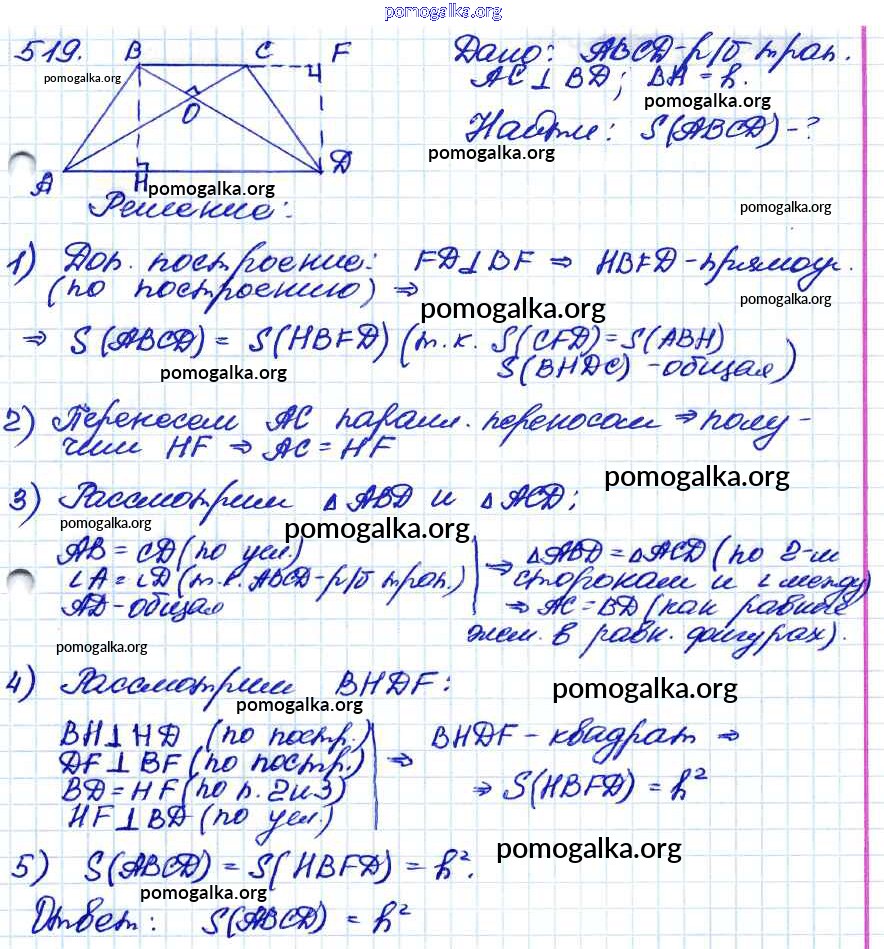 pomogalka.org
519. B C F Дано: ABCD-р/б трап.
pomogalka.org
AC⊥BD; BH=h.
pomogalka.org
O
Найти: S(ABCD)-?
pomogalka.org
A H D
pomogalka.org
Решение:
pomogalka.org
1) Доп. построение: FD⊥BF ⇒ HBFD-прямоуг.
(по построению) ⇒
pomogalka.org
pomogalka.org
⇒ S(ABCD) = S(HBFD) (т.к. S(CFD)=S(ABH)
pomogalka.org
S(BHDC) -общая)
2) Перенесем AC паралл. переносом ⇒ полу-
чим HF ⇒ AC = HF
pomogalka.org
3) Рассмотрим △ABD и △ACD;
pomogalka.org
pomogalka.org
AB = CD (по усл.) ⇒ △ABD = △ACD (по 2-м
∠A = ∠D (т.к. ABCD-р/б трап.) сторонам и ∠ между)
AD-общая ⇒ AC = BD (как равные
элем. в равн. фигурах).
pomogalka.org
4) Рассмотрим BHDF:
pomogalka.org
pomogalka.org
BH⊥HD (по постр.) ⇒ BHDF - квадрат ⇒
DF⊥BF (по постр.)
BD = HF (по п. 2и3) ⇒ S(HBFD) = h²
HF⊥BD (по усл.)
pomogalka.org
5) S(ABCD) = S(HBFD) = h².
pomogalka.org
Ответ: S(ABCD) = h²